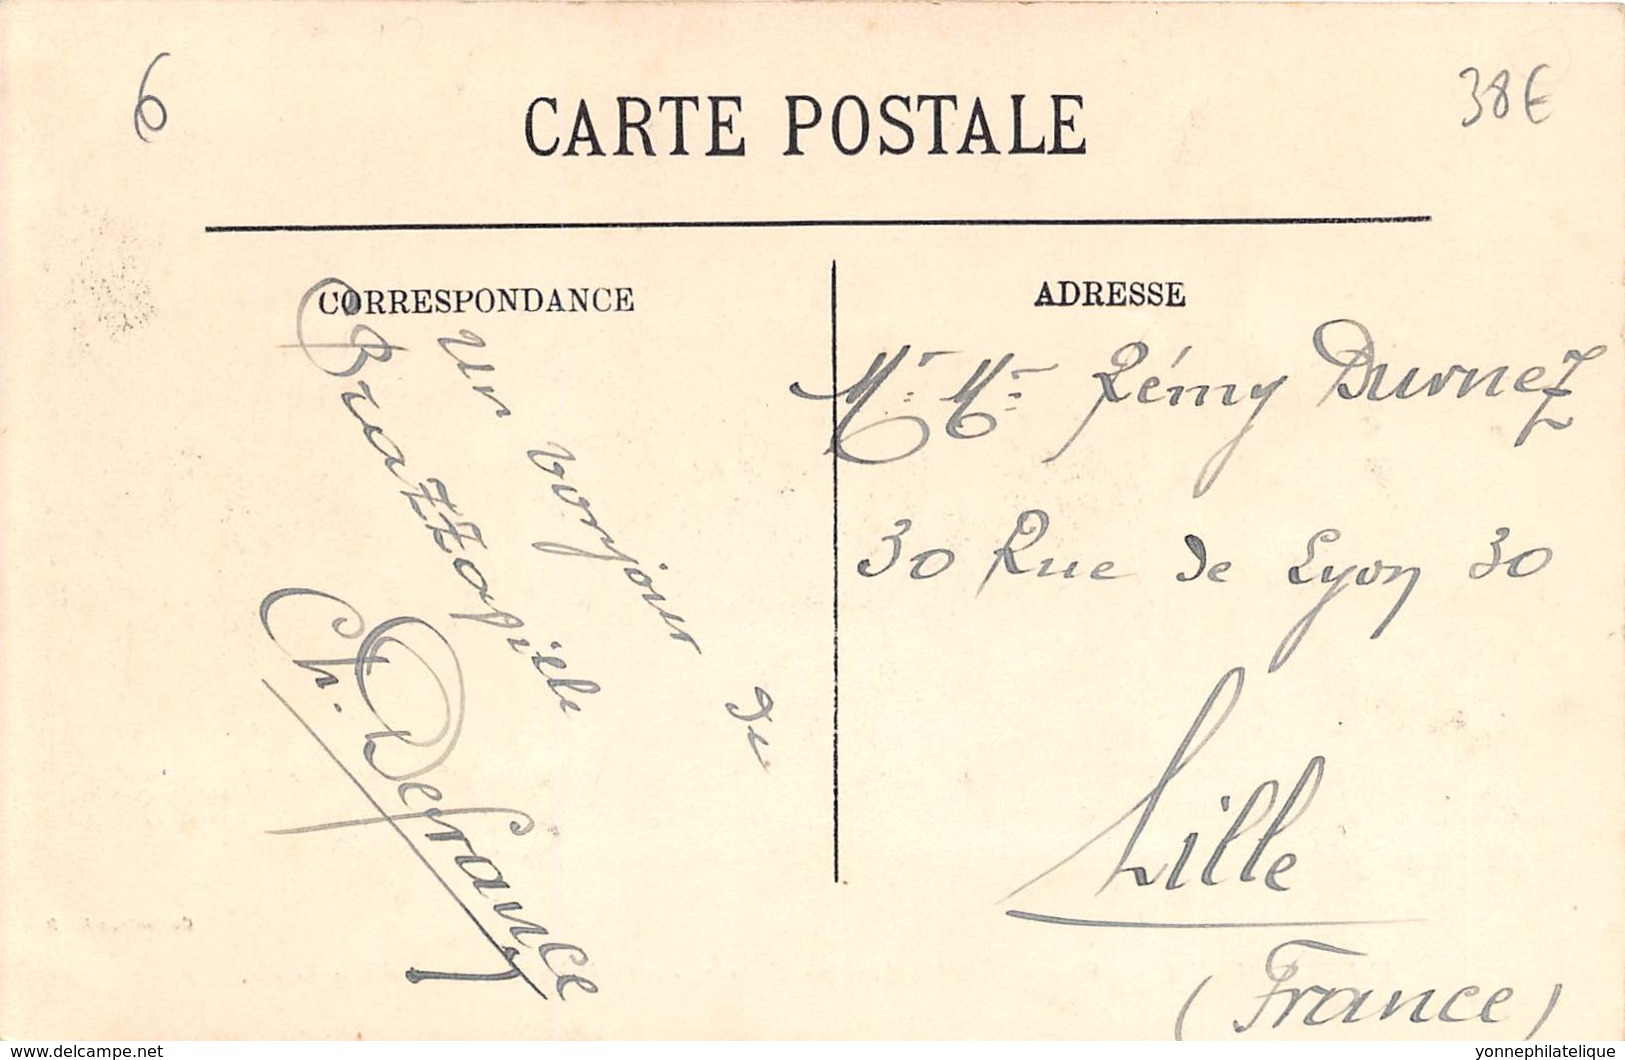 6
38€
CARTE POSTALE
CORRESPONDANCE
un bonjour de
Brazzaville
Ch. Defrance
ADRESSE
Mr. Mr. Rémy Durnez
30 Rue de Lyon 30
Lille
(France)
www.delcampe.net
yonnephilatelique